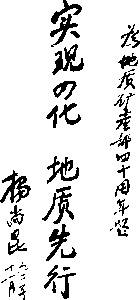 为地质矿产部四十周年题
实现四化 地质先行
杨尚昆